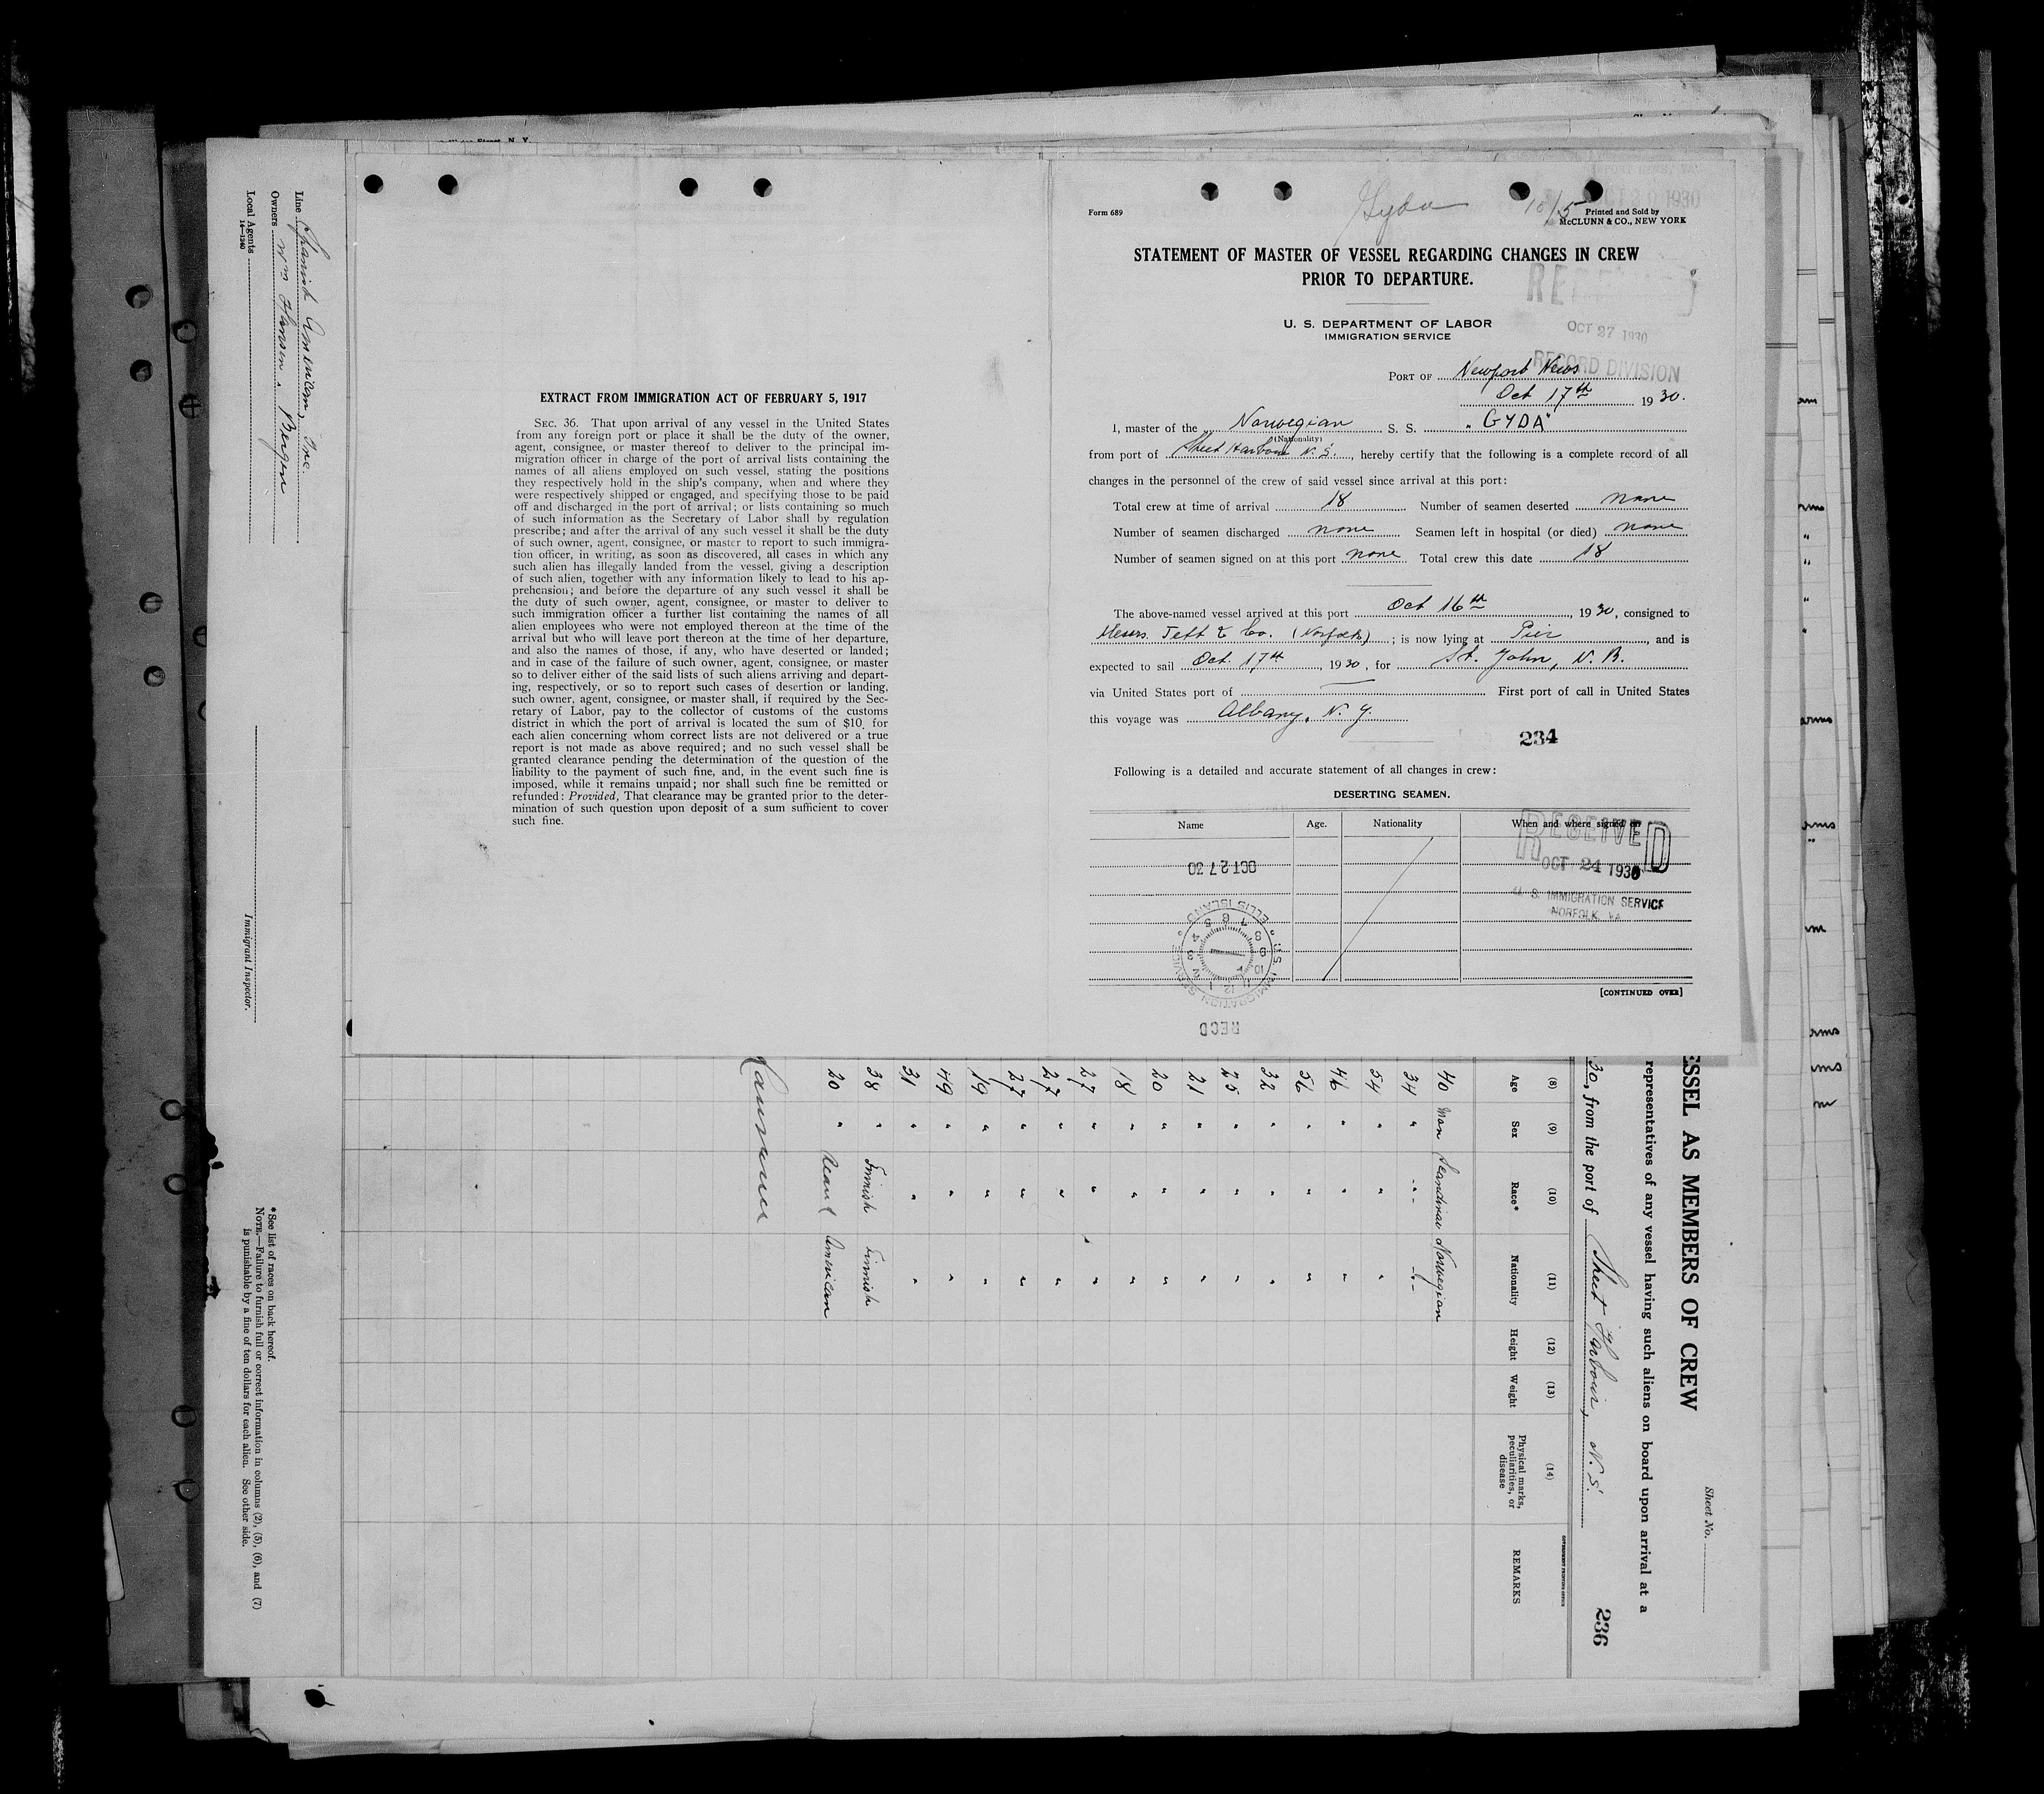 Line Spanish American, Inc.
Owners Wm Hansen, Bergen
Local Agents
14—1240
Immigrant Inspector.
* See list of races on back hereof.
NOTE.—Failure to furnish full or correct information in columns (2), (5), (6), and (7)
is punishable by a fine of ten dollars for each alien. See other side.
EXTRACT FROM IMMIGRATION ACT OF FEBRUARY 5, 1917
SEC. 36. That upon arrival of any vessel in the United States
from any foreign port or place it shall be the duty of the owner,
agent, consignee, or master thereof to deliver to the principal im-
migration officer in charge of the port of arrival lists containing the
names of all aliens employed on such vessel, stating the positions
they respectively hold in the ship's company, when and where they
were respectively shipped or engaged, and specifying those to be paid
off and discharged in the port of arrival; or lists containing so much
of such information as the Secretary of Labor shall by regulation
prescribe; and after the arrival of any such vessel it shall be the duty
of such owner, agent, consignee, or master to report to such immigra-
tion officer, in writing, as soon as discovered, all cases in which any
such alien has illegally landed from the vessel, giving a description
of such alien, together with any information likely to lead to his ap-
prehension; and before the departure of any such vessel it shall be
the duty of such owner, agent, consignee, or master to deliver to
such immigration officer a further list containing the names of all
alien employees who were not employed thereon at the time of the
arrival but who will leave port thereon at the time of her departure,
and also the names of those, if any, who have deserted or landed;
and in case of the failure of such owner, agent, consignee, or master
so to deliver either of the said lists of such aliens arriving and depart-
ing, respectively, or so to report such cases of desertion or landing,
such owner, agent, consignee, or master shall, if required by the Sec-
retary of Labor, pay to the collector of customs of the customs
district in which the port of arrival is located the sum of $10 for
each alien concerning whom correct lists are not delivered or a true
report is not made as above required; and no such vessel shall be
granted clearance pending the determination of the question of the
liability to the payment of such fine, and, in the event such fine is
imposed, while it remains unpaid; nor shall such fine be remitted or
refunded: Provided, That clearance may be granted prior to the deter-
mination of such question upon deposit of a sum sufficient to cover
such fine.
Gyda 10/15
Form 689
Printed and Sold by
McCLUNN & CO., NEW YORK
STATEMENT OF MASTER OF VESSEL REGARDING CHANGES IN CREW
PRIOR TO DEPARTURE.
U. S. DEPARTMENT OF LABOR
IMMIGRATION SERVICE
OCT 27 1930
RECORD DIVISION
PORT OF Newport News
Oct 17th 1930.
I, master of the Norwegian S. S. "GYDA"
(Nationality)
from port of Sheet Harbour N.S., hereby certify that the following is a complete record of all
changes in the personnel of the crew of said vessel since arrival at this port:
Total crew at time of arrival 18 Number of seamen deserted none
Number of seamen discharged none Seamen left in hospital (or died) none
Number of seamen signed on at this port none Total crew this date 18
The above-named vessel arrived at this port Oct 16th, 1930, consigned to
Messrs. Jeff & Co. (Norfolk); is now lying at Pier, and is
expected to sail Oct. 17th, 1930, for St. John, N. B.
via United States port of — First port of call in United States
this voyage was Albany, N. Y.
234
Following is a detailed and accurate statement of all changes in crew:
DESERTING SEAMEN.
Name Age. Nationality When and where signed on
RECEIVED
OCT 24 1930
U. S. IMMIGRATION SERVICE
NORFOLK, VA
OCT 27 30
U.S. IMMIGRATION SERVICE
ELLIS ISLAND
RECD
[CONTINUED OVER]
Sheet No.
ESSEL AS MEMBERS OF CREW
representatives of any vessel having such aliens on board upon arrival at a
30, from the port of Sheet Harbour, N. S.
236
GOVERNMENT PRINTING OFFICE
(8) (9) (10) (11) (12) (13) (14)
Age Sex Race* Nationality Height Weight Physical marks, peculiarities, or disease REMARKS
40 Man Scandinav Norwegian
34 " -"- -"-
54 " " "
46 " " "
56 " " "
32 " " "
25 " " "
21 " " "
20 " " "
18 " " "
27 " " "
27 " " "
27 " " "
19 " " "
49 " " "
31 " " "
38 " Finnish Finnish
20 " American